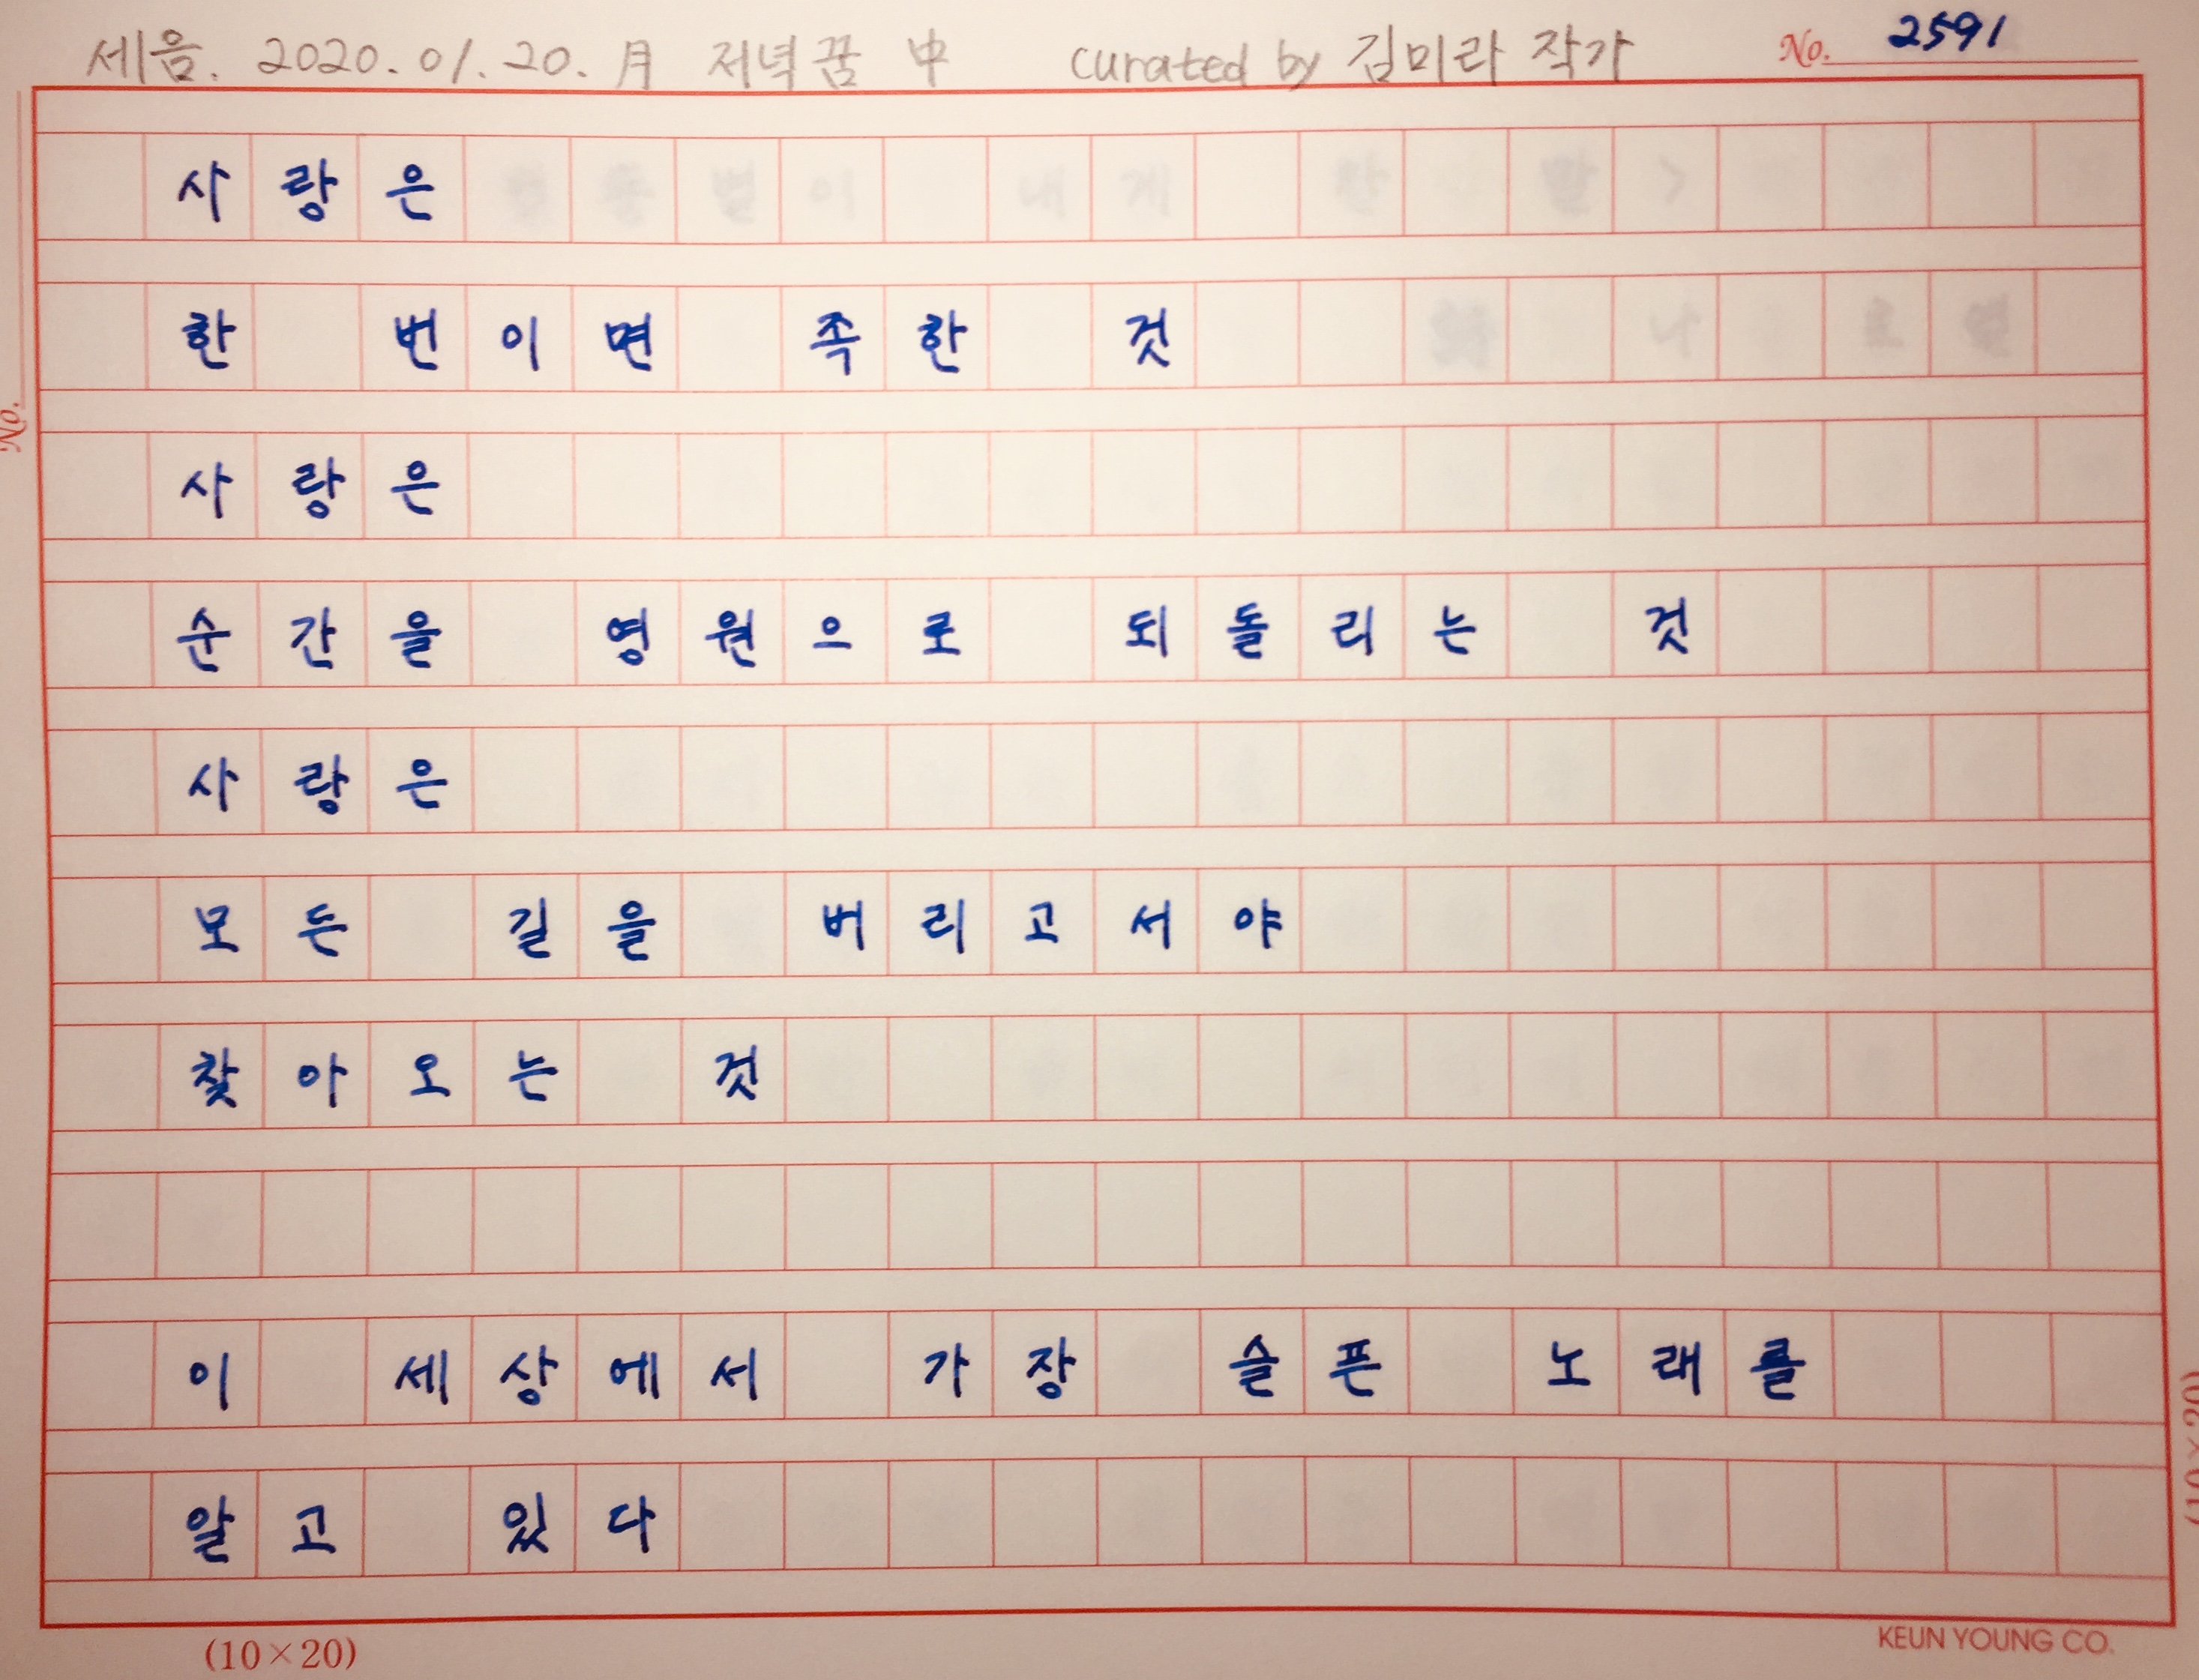 세음. 2020.01.20. 月 저녁꿈 中 curated by 김미라 작가 No. 2591
사랑은
한 번이면 족한 것
No.
사랑은
순간을 영원으로 되돌리는 것
사랑은
모든 길을 버리고서야
찾아오는 것
이 세상에서 가장 슬픈 노래를
알고 있다
(10×20)
(10×20) KEUN YOUNG CO.